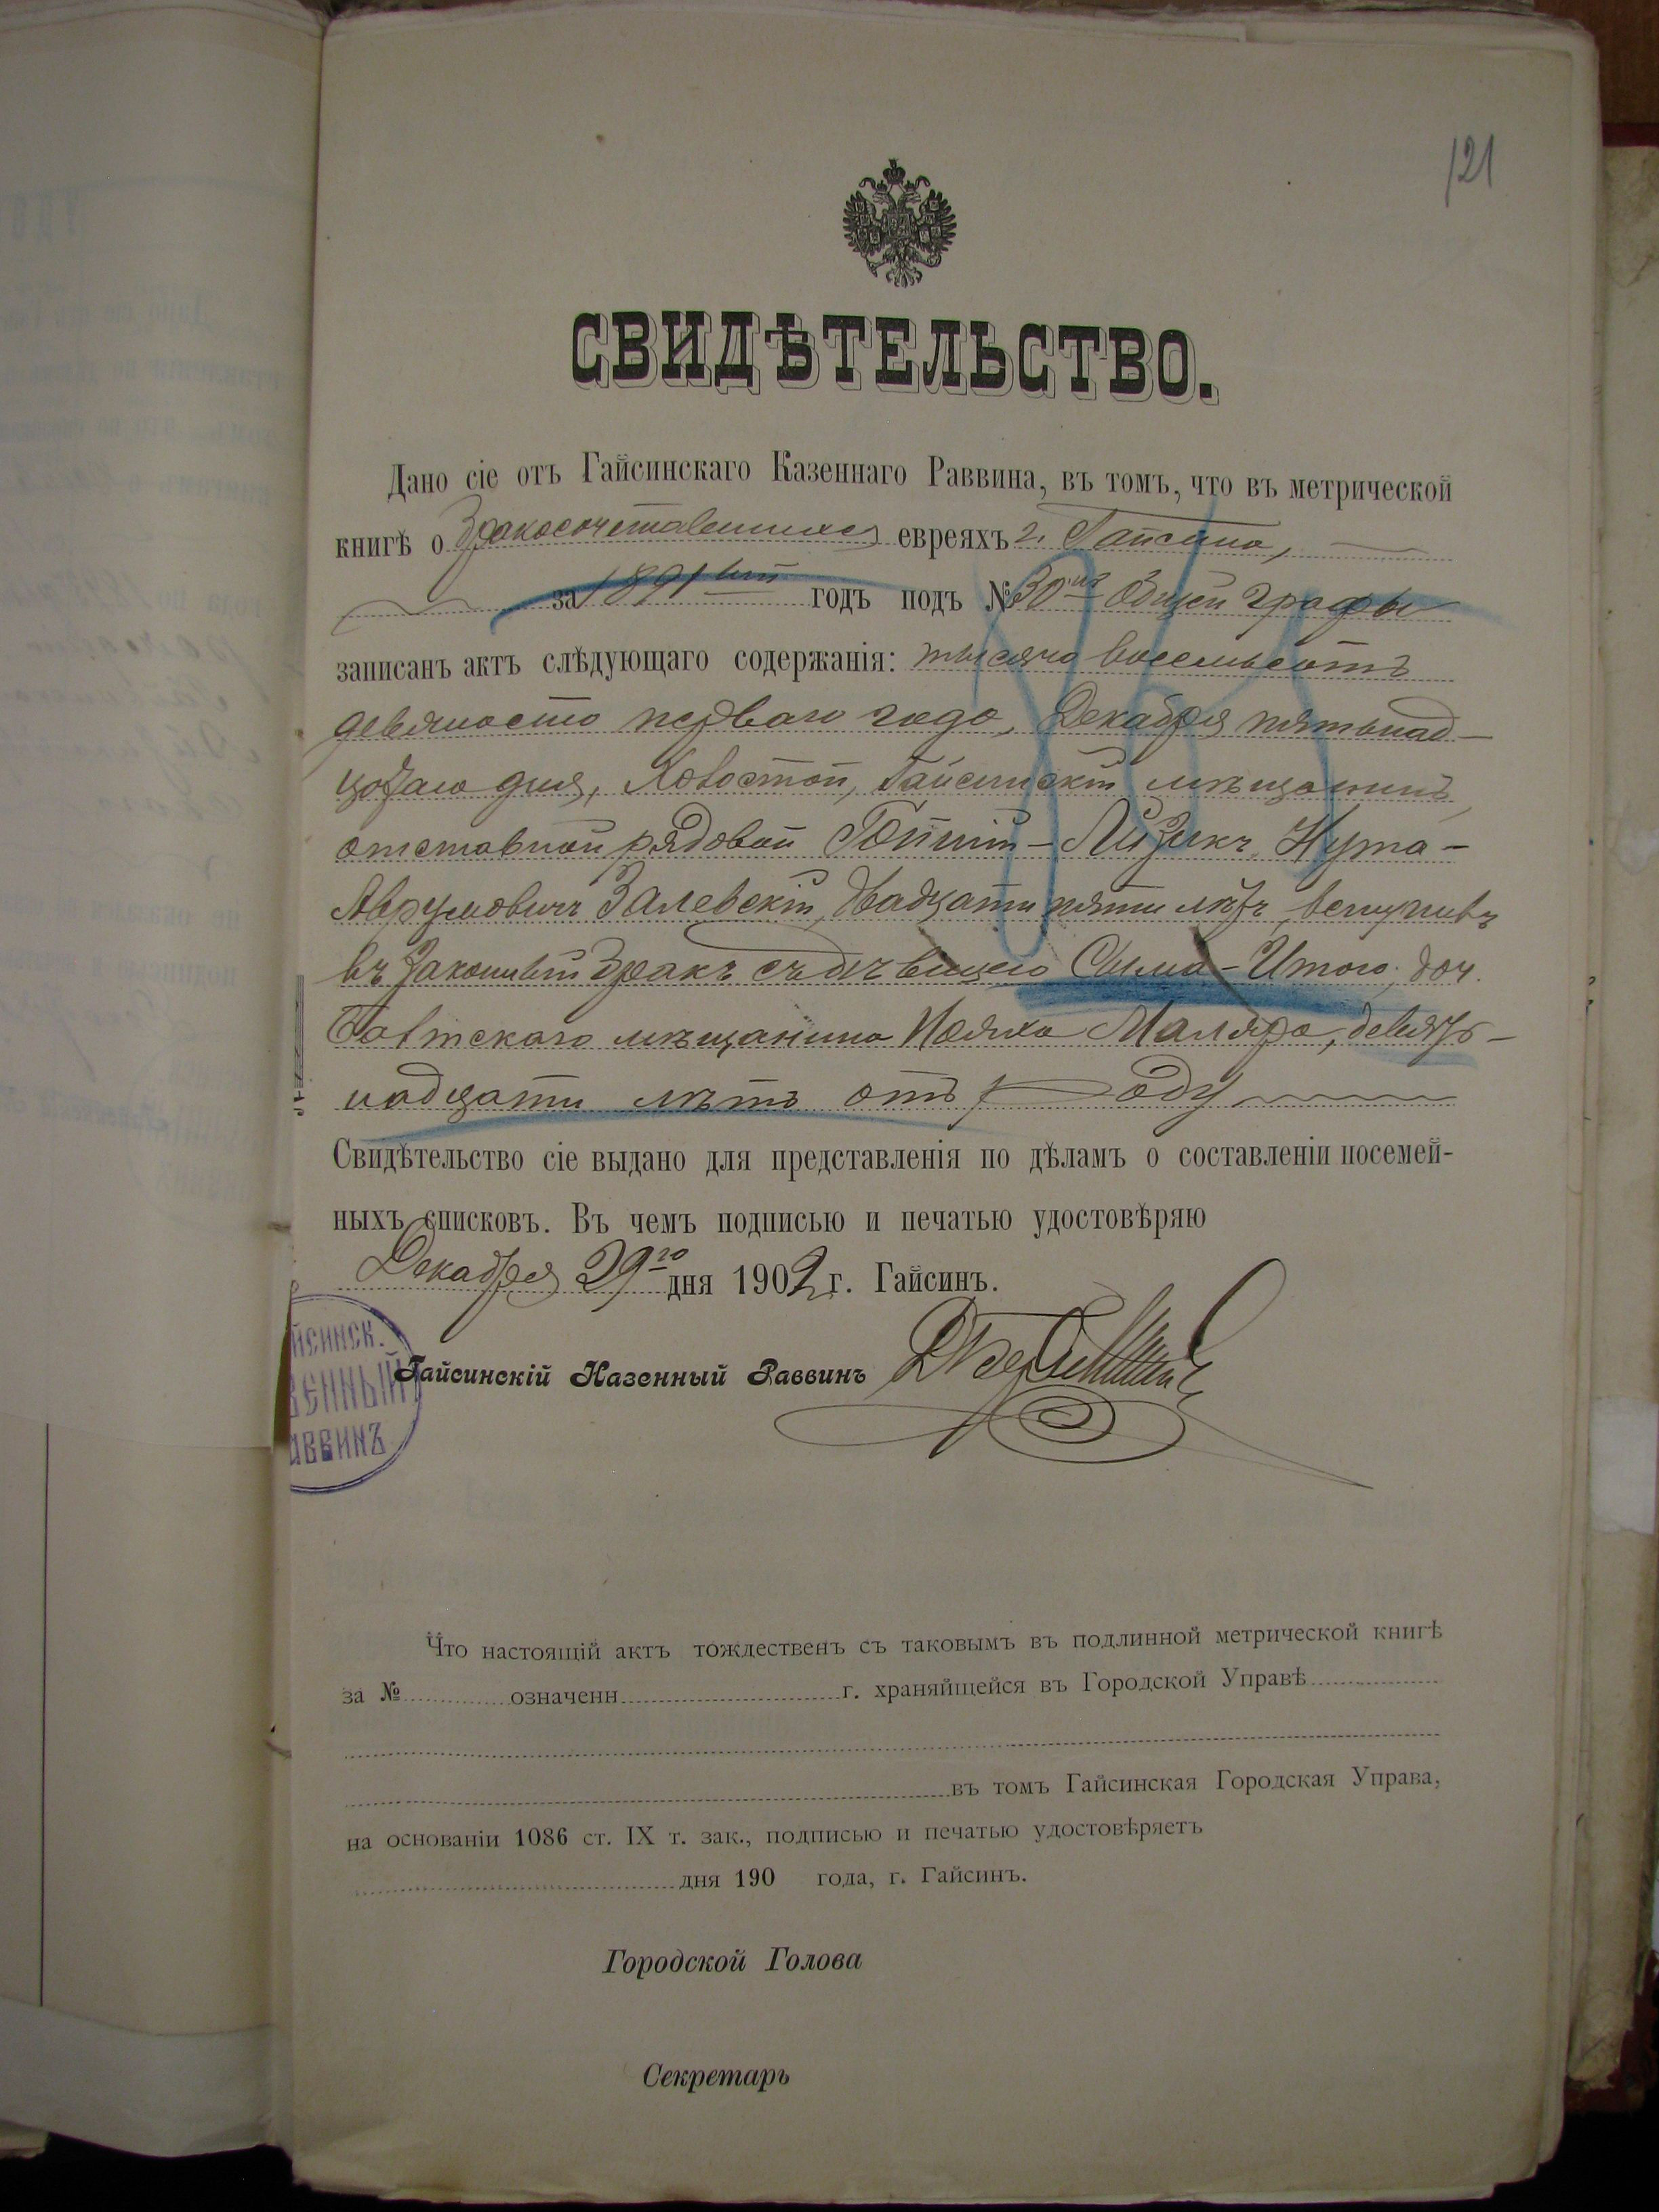 121
СВИДѢТЕЛЬСТВО.
Дано сіе отъ Гайсинскаго Казеннаго Раввина, въ томъ, что въ метрической
книгѣ о бракосочетавшихся евреяхъ г. Гайсина,
за 1891 ый годъ подъ № 30 общей графы
записанъ актъ слѣдующаго содержанія: тысяча восемьсотъ
девяносто перваго года, Декабря пятьнад-
цатаго дня, Холостой, Гайсинскій мѣщанинъ,
отставной рядовой Айзикъ Нута-
Аврумовичъ Залевскій, двадцати пяти лѣтъ, вступивъ
въ законный бракъ съ дѣвицею Сима-Итою, доч.
мѣщанина Маляра, девят-
надцати лѣтъ отъ роду
Свидѣтельство сіе выдано для представленія по дѣламъ о составленіи посемей-
ныхъ списковъ. Въ чемъ подписью и печатью удостовѣряю
Декабря 29го дня 1902 г. Гайсинъ.
йсинск.
венный
аввинъ
Гайсинскій Казенный Раввинъ
Что настоящій актъ тождественъ съ таковымъ въ подлинной метрической книгѣ
за № означенн г. храняйщейся въ Городской Управѣ
въ томъ Гайсинская Городская Управа,
на основаніи 1086 ст. IX т. зак., подписью и печатью удостовѣряетъ
дня 190 года, г. Гайсинъ.
Городской Голова
Секретарь